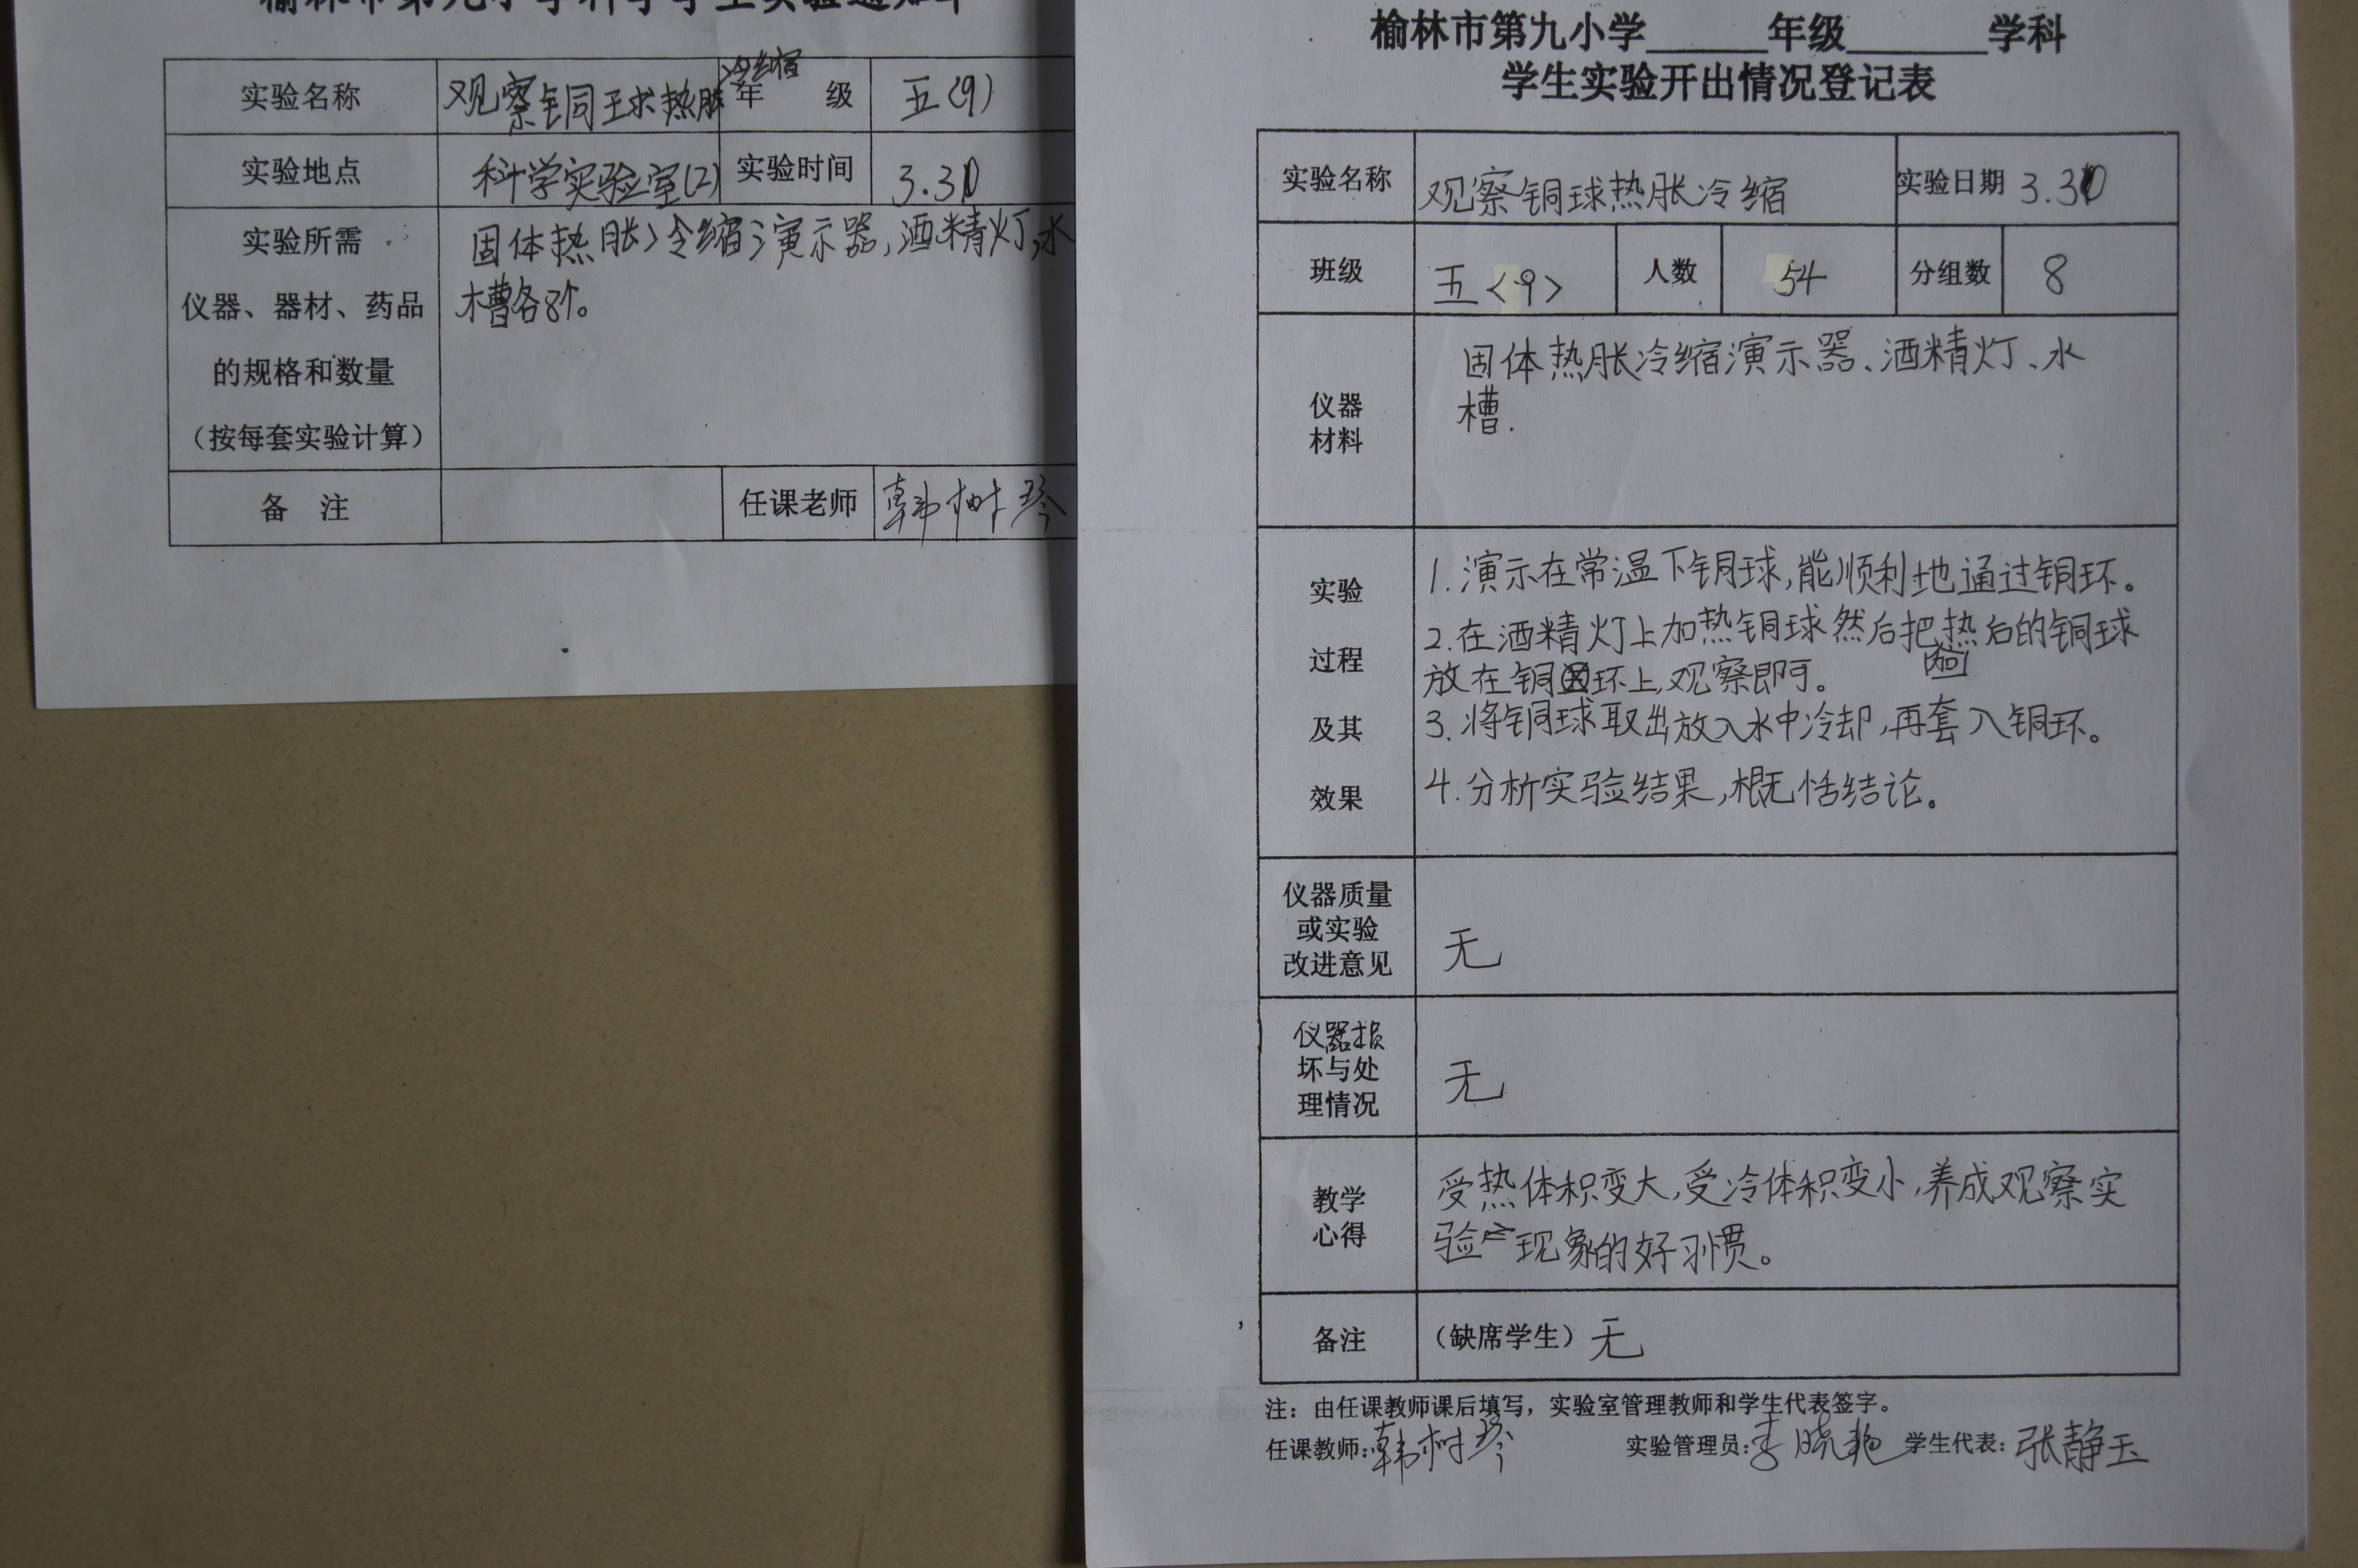 榆林市第九小学科学学生实验通知单
实验名称 观察铜球热胀冷缩 年 级 五(9)
实验地点 科学实验室(2) 实验时间
实验所需 固体热胀冷缩演示器,酒精灯,水
仪器、器材、药品 槽各8个。
的规格和数量
(按每套实验计算)
备 注 任课老师 韩树琴
榆林市第九小学______年级_______学科
学生实验开出情况登记表
实验名称 观察铜球热胀冷缩 实验日期
班级 五<9> 人数 54 分组数 8
仪器
材料
固体热胀冷缩演示器、酒精灯、水
槽.
实验
过程
及其
效果
1.演示在常温下铜球,能顺利地通过铜环。
2.在酒精灯上加热铜球然后把热后的铜球
放在铜环上,观察即可。
3.将铜球取出放入水中冷却,再套入铜环。
4.分析实验结果,概括结论。
仪器质量
或实验
改进意见
无
仪器损
坏与处
理情况
无
教学
心得
受热体积变大,受冷体积变小,养成观察实
验现象的好习惯。
备注 (缺席学生) 无
注：由任课教师课后填写，实验室管理教师和学生代表签字。
任课教师:韩树琴 实验管理员:李晓艳 学生代表:张静玉